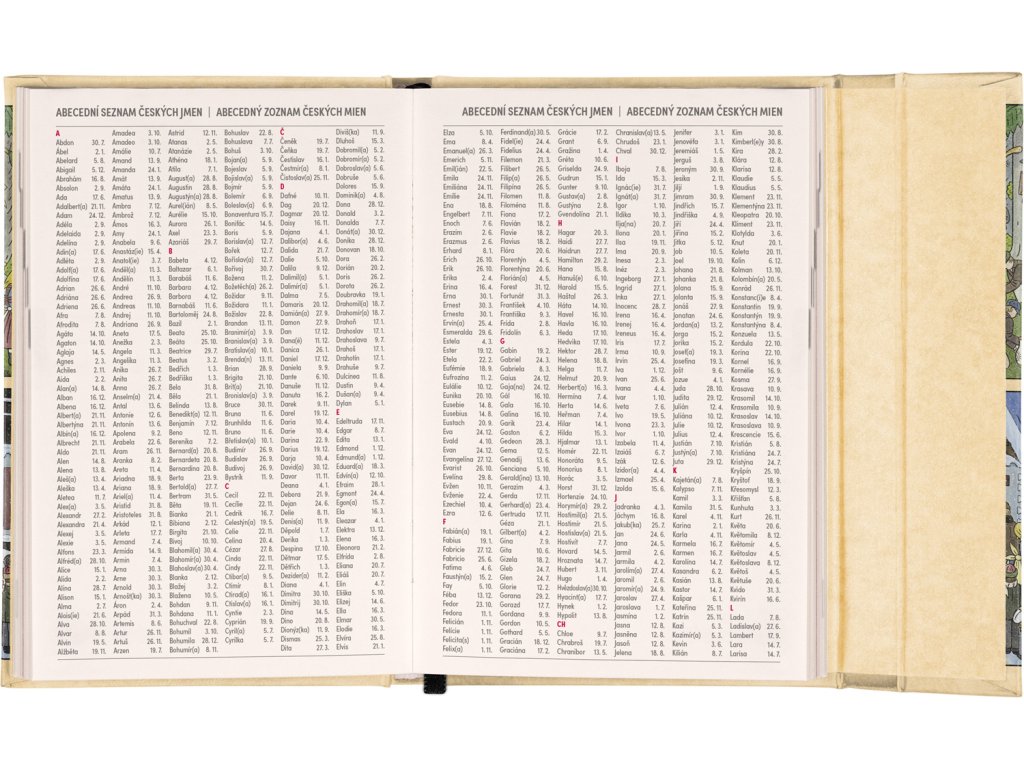 ABECEDNÍ SEZNAM ČESKÝCH JMEN | ABECEDNÝ ZOZNAM ČESKÝCH MIEN
A
Abdon 30. 7.
Ábel 2. 1.
Abelard 5. 8.
Abigail 5. 12.
Abrahám 16. 8.
Absolon 2. 9.
Ada 17. 6.
Adalbert(a) 21. 11.
Adam 24. 12.
Adéla 2. 9.
Adelaida 2. 9.
Adelína 2. 9.
Adin(a) 17. 6.
Adléta 2. 9.
Adolf(a) 17. 6.
Adolfína 17. 6.
Adrian 26. 6.
Adriána 26. 6.
Adriena 26. 6.
Afra 7. 8.
Afrodita 7. 8.
Agáta 14. 10.
Agaton 14. 10.
Aglaja 14. 5.
Agnes 2. 3.
Achiles 2. 11.
Aida 2. 2.
Alan(a) 14. 8.
Alban 16. 12.
Albena 16. 12.
Albert(a) 21. 11.
Albertýna 21. 11.
Albín(a) 16. 12.
Albrecht 21. 11.
Aldo 21. 11.
Alen 14. 8.
Alena 13. 8.
Aleš(a) 13. 4.
Aleška 13. 4.
Aletea 11. 7.
Alex(a) 3. 5.
Alexandr 27. 2.
Alexandra 21. 4.
Alexej 3. 5.
Alexie 3. 5.
Alfons 23. 3.
Alfréd(a) 28. 10.
Alice 15. 1.
Alida 2. 2.
Alina 28. 7.
Alison 15. 1.
Alma 2. 7.
Alois(ie) 21. 6.
Alva 28. 10.
Alvar 8. 8.
Alvin 19. 5.
Alžběta 19. 11.
Amadea 3. 10.
Amadeo 3. 10.
Amálie 10. 7.
Amand 13. 9.
Amanda 24. 1.
Amát 13. 9.
Amáta 24. 1.
Amatus 13. 9.
Ambra 7. 12.
Ambrož 7. 12.
Ámos 16. 3.
Amy 24. 1.
Anabela 9. 6.
Anastáz(ie) 15. 4.
Anatol(e) 3. 7.
Anděl(a) 11. 3.
Andělín 11. 3.
André 11. 10.
Andrea 26. 9.
Andreas 11. 10.
Andrej 11. 10.
Andriana 26. 9.
Aneta 17. 5.
Anežka 2. 3.
Angela 11. 3.
Angelika 11. 3.
Anika 26. 7.
Anita 26. 7.
Anna 26. 7.
Anselm(a) 21. 4.
Antal 13. 6.
Antonie 12. 6.
Antonín 13. 6.
Apolena 9. 2.
Arabela 22. 6.
Aram 26. 11.
Aranka 8. 2.
Areta 11. 4.
Ariadna 18. 9.
Ariana 18. 9.
Ariel(a) 11. 4.
Aristid 31. 8.
Aristoteles 31. 8.
Arkád 12. 1.
Arleta 17. 7.
Armand 7. 4.
Armida 14. 9.
Armin 7. 4.
Arna 30. 3.
Arne 30. 3.
Arnold 30. 3.
Arnošt(ka) 30. 3.
Áron 2. 4.
Arpád 31. 3.
Artemis 8. 6.
Artur 26. 11.
Artuš 26. 11.
Arzen 19. 7.
Astrid 12. 11.
Atanas 2. 5.
Atanázie 2. 5.
Athéna 18. 1.
Atila 7. 1.
August(a) 28. 8.
Augustin 28. 8.
Augustýn(a) 28. 8.
Aurel(ián) 8. 5.
Aurélie 15. 10.
Aurora 26. 1.
Axel 23. 3.
Azariáš 29. 7.
B
Babeta 4. 12.
Baltazar 6. 1.
Barabáš 11. 6.
Barbara 4. 12.
Barbora 4. 12.
Barnabáš 11. 6.
Bartoloměj 24. 8.
Bazil 2. 1.
Beata 25. 10.
Beáta 25. 10.
Beatrice 29. 7.
Beatus 3. 2.
Bedřich 1. 3.
Bedřiška 1. 3.
Bela 31. 8.
Běla 21. 1.
Belinda 13. 8.
Benedikt(a) 12. 11.
Benjamin 7. 12.
Beno 12. 11.
Berenika 7. 2.
Bernard(a) 20. 8.
Bernardeta 20. 8.
Bernardina 20. 8.
Berta 23. 9.
Bertold(a) 27. 7.
Bertram 31. 5.
Běta 19. 11.
Bianka 21. 1.
Bibiana 2. 12.
Birgita 21. 10.
Bivoj 10. 10.
Blahomil(a) 30. 4.
Blahomír(a) 30. 4.
Blahoslav(a) 30. 4.
Blanka 2. 12.
Blažej 3. 2.
Blažena 10. 5.
Bohdan 9. 11.
Bohdana 11. 1.
Bohuchval 22. 8.
Bohumil 3. 10.
Bohumila 28. 12.
Bohumír(a) 8. 11.
Bohuslav 22. 8.
Bohuslava 7. 7.
Bohuš 3. 10.
Bojan(a) 5. 9.
Bojeslav 5. 9.
Bojislav 5. 9.
Bojmír 5. 9.
Bolemír 6. 9.
Boleslav(a) 6. 9.
Bonaventura 15. 7.
Bonifác 14. 5.
Boris 5. 9.
Borislav(a) 12. 7.
Bořek 12. 7.
Bořislav(a) 12. 7.
Bořivoj 30. 7.
Božena 11. 2.
Božetěch(a) 26. 2.
Božidar 9. 11.
Božidara 11. 1.
Božislav 22. 8.
Brandon 13. 11.
Branimír(a) 3. 9.
Branislav(a) 3. 9.
Bratislav(a) 10. 1.
Brenda(n) 13. 11.
Brian 28. 9.
Brigita 21. 10.
Brit(a) 21. 10.
Bronislav(a) 3. 9.
Bruce 30. 11.
Bruna 11. 6.
Brunhilda 11. 6.
Bruno 11. 6.
Břetislav(a) 10. 1.
Budimír 26. 9.
Budislav 26. 9.
Budivoj 26. 9.
Bystrík 11. 9.
C
Cecil 22. 11.
Cecílie 22. 11.
Cedrik 16. 7.
Celestýn(a) 19. 5.
Celie 22. 11.
Celina 20. 4.
Cézar 27. 8.
Cinda 22. 11.
Cindy 22. 11.
Ctibor(a) 9. 5.
Ctimír 8. 1.
Ctirad(a) 16. 1.
Ctislav(a) 16. 1.
Cyntie 2. 3.
Cyprián 19. 9.
Cyril(a) 5. 7.
Cyrilka 5. 7.
Č
Čeněk 19. 7.
Čeňka 19. 7.
Česlislav 16. 1.
Čestmír(a) 8. 1.
Čistoslav(a) 25. 11.
D
Dafné 10. 11.
Dag 20. 12.
Dagmar 20. 12.
Daisy 16. 11.
Dajana 4. 1.
Dalibor(a) 4. 6.
Dalida 21. 7.
Dalie 5. 10.
Dalila 9. 12.
Dalimil(a) 5. 1.
Dalimír(a) 5. 1.
Dalma 7. 5.
Damaris 20. 12.
Damián(a) 27. 9.
Damon 27. 9.
Dan 17. 12.
Dana(é) 11. 12.
Danica 26. 1.
Daniel 17. 12.
Daniela 9. 9.
Dante 6. 10.
Danuše 11. 12.
Danuta 16. 2.
Darek 9. 11.
Darel 19. 12.
Daria 10. 4.
Darie 10. 4.
Darina 22. 9.
Darius 19. 12.
Darja 10. 4.
David(a) 30. 12.
Davor 11. 11.
Deana 4. 1.
Debora 21. 9.
Dejan 24. 6.
Delie 8. 11.
Denis(a) 11. 9.
Děpold 1. 7.
Derika 1. 3.
Despina 17. 10.
Dětmar 17. 5.
Dětřich 1. 3.
Dezider(a) 11. 2.
Diana 4. 1.
Dimitra 30. 10.
Dimitrij 30. 10.
Dina 14. 5.
Dino 20. 8.
Dionýz(ka) 11. 9.
Dismas 25. 3.
Dita 27. 3.
Diviš(ka) 11. 9.
Dluhoš 15. 3.
Dobromil(a) 5. 2.
Dobromír(a) 5. 2.
Dobroslav(a) 5. 6.
Dobruše 5. 6.
Dolores 15. 9.
Dominik(a) 4. 8.
Dona 28. 12.
Donald 3. 2.
Donalda 7. 7.
Donát(a) 30. 12.
Donika 28. 12.
Donovan 18. 10.
Dora 26. 2.
Dorián 20. 2.
Doris 26. 2.
Dorota 26. 2.
Doubravka 19. 1.
Drahomil(a) 18. 7.
Drahomír(a) 18. 7.
Drahoň 17. 1.
Drahoslav 17. 1.
Drahoslava 9. 7.
Drahoš 17. 1.
Drahotín 17. 1.
Drahuše 9. 7.
Dulcinea 11. 8.
Dustin 9. 4.
Dušan(a) 9. 4.
Dylan 5. 1.
E
Edeltruda 17. 11.
Edgar 8. 7.
Edita 13. 1.
Edmond 1. 12.
Edmund(a) 1. 12.
Eduard(a) 18. 3.
Edvín(a) 12. 10.
Efraim 28. 1.
Egmont 24. 4.
Egon(a) 15. 7.
Ela 16. 3.
Eleazar 4. 1.
Elektra 13. 12.
Elena 16. 3.
Eleonora 21. 2.
Elfrída 2. 8.
Eliana 20. 7.
Eliáš 20. 7.
Elin 4. 7.
Eliška 5. 10.
Elizej 14. 6.
Ella 16. 3.
Elmar 30. 5.
Elodie 16. 3.
Elvíra 25. 8.
Elvis 21. 1.
ABECEDNÍ SEZNAM ČESKÝCH JMEN | ABECEDNÝ ZOZNAM ČESKÝCH MIEN
Elza 5. 10.
Ema 8. 4.
Emanuel(a) 26. 3.
Emerich 5. 11.
Emil(ián) 22. 5.
Emila 24. 11.
Emiliána 24. 11.
Emílie 24. 11.
Ena 18. 8.
Engelbert 7. 11.
Enoch 7. 6.
Erazim 2. 6.
Erazmus 2. 6.
Erhard 8. 1.
Erich 26. 10.
Erik 26. 10.
Erika 2. 4.
Erina 16. 4.
Erna 30. 1.
Ernest 30. 3.
Ernesta 30. 1.
Ervín(a) 25. 4.
Esmeralda 29. 6.
Estela 4. 3.
Ester 19. 12.
Etela 22. 2.
Eufémie 18. 9.
Eufrozína 11. 2.
Eulálie 10. 12.
Eunika 20. 10.
Eusebie 14. 8.
Eusebius 14. 8.
Eustach 20. 9.
Eva 24. 12.
Evald 4. 10.
Evan 24. 12.
Evangelína 27. 12.
Evarist 26. 10.
Evelína 29. 8.
Evžen 10. 11.
Evženie 22. 4.
Ezechiel 10. 4.
Ezra 12. 6.
F
Fabián(a) 19. 1.
Fabius 19. 1.
Fabricie 27. 12.
Fabrício 25. 6.
Fatima 4. 6.
Faustýn(a) 15. 2.
Fay 5. 10.
Féba 13. 12.
Fedor 23. 10.
Fedora 11. 1.
Felicián 1. 11.
Felicie 1. 11.
Felicita(s) 1. 11.
Felix(a) 1. 11.
Ferdinand(a) 30. 5.
Fidel(ie) 24. 4.
Fidelius 24. 4.
Filemon 21. 3.
Filibert 26. 5.
Filip(a) 26. 5.
Filipína 26. 5.
Filomen 11. 8.
Filoména 11. 8.
Fiona 17. 2.
Flavián 18. 2.
Flavie 18. 2.
Flavius 18. 2.
Flóra 20. 6.
Florentýn 4. 5.
Florentýna 20. 6.
Florián(a) 4. 5.
Forest 31. 12.
Fortunát 31. 3.
František 4. 10.
Františka 9. 3.
Frída 2. 8.
Fridolín 6. 3.
G
Gabin 19. 2.
Gabriel 24. 3.
Gabriela 8. 3.
Gaius 24. 12.
Gaja(na) 24. 12.
Gál 16. 10.
Gala 16. 10.
Galina 16. 10.
Garik 23. 4.
Gaston 6. 2.
Gedeon 28. 3.
Gema 12. 5.
Genadij 13. 6.
Genciana 5. 10.
Gerald(ina) 13. 10.
Gerazim 4. 3.
Gerda 17. 11.
Gerhard(a) 23. 4.
Gertruda 17. 11.
Géza 21. 1.
Gilbert(a) 4. 2.
Gina 7. 9.
Gita 10. 6.
Gizela 18. 2.
Gleb 24. 7.
Glen 24. 7.
Glorie 12. 2.
Gorana 29. 2.
Gorazd 17. 7.
Gordana 9. 9.
Gordon 10. 5.
Gothard 5. 5.
Gracián 18. 12.
Graciána 17. 2.
Grácie 17. 2.
Gražina 1. 4.
Gražina 1. 4.
Gréta 10. 6.
Griselda 24. 9.
Gudrun 15. 1.
Gunter 9. 10.
Gustav(a) 2. 8.
Gustýna 2. 8.
Gvendolína 21. 1.
H
Hagar 20. 3.
Haida 27. 7.
Haidi 27. 7.
Hamilton 29. 2.
Hana 15. 8.
Hanuš(e) 6. 10.
Harold 15. 5.
Haštal 26. 3.
Háta 14. 10.
Havel 16. 10.
Havla 16. 10.
Heda 17. 10.
Hedvika 17. 10.
Hektor 28. 7.
Helena 18. 8.
Helga 11. 7.
Helmut 20. 9.
Herbert(a) 16. 3.
Hermína 7. 4.
Herta 14. 6.
Heřman 7. 4.
Hilar 14. 1.
Hilda 15. 3.
Hjalmar 13. 1.
Homér 22. 11.
Honoráta 9. 5.
Honorius 8. 1.
Horác 3. 5.
Horst 31. 12.
Hortenzie 24. 10.
Horymír(a) 29. 2.
Hostimil(a) 21. 5.
Hostimír 21. 5.
Hostislav(a) 21. 5.
Hostivít 7. 7.
Hovard 14. 5.
Hroznata 14. 7.
Hubert 3. 11.
Hugo 1. 4.
Hvězdoslav(a) 30. 10.
Hyacint(a) 17. 7.
Hynek 1. 2.
Hypolit 13. 8.
CH
Chloe 9. 7.
Chraběoš 19. 7.
Chranibor 13. 5.
Chranislav(a) 13. 5.
Chrudoš 23. 1.
Chval 30. 12.
I
Iboja 7. 8.
Ida 15. 3.
Ignác(ie) 31. 7.
Ignát(a) 31. 7.
Igor 1. 10.
Ildika 10. 3.
Ilja(na) 20. 7.
Ilona 20. 1.
Ilsa 19. 11.
Ima 20. 9.
Inesa 2. 3.
Inéz 2. 3.
Ingeborg 27. 1.
Ingrid 27. 1.
Inka 27. 1.
Inocenc 28. 7.
Irena 16. 4.
Irenej 16. 4.
Ireneus 16. 4.
Iris 17. 7.
Irma 10. 9.
Irvin 25. 4.
Iva 1. 12.
Ivan 25. 6.
Ivana 4. 4.
Ivar 1. 10.
Iveta 7. 6.
Ivo 19. 5.
Ivona 23. 3.
Ivor 1. 10.
Izabela 11. 4.
Izaiáš 6. 7.
Izák 12. 6.
Izidor(a) 4. 4.
Izmael 25. 4.
Izolda 15. 6.
J
Jadranka 4. 3.
Jáchym 16. 8.
Jakub(ka) 25. 7.
Jan 24. 6.
Jana 24. 5.
Jarmil 2. 6.
Jarmila 4. 2.
Jarolím(a) 27. 4.
Jaromil 2. 6.
Jaromír(a) 24. 9.
Jaroslav 27. 4.
Jaroslava 1. 7.
Jasmína 1. 2.
Jasna 12. 8.
Jasněna 12. 8.
Jasoň 12. 8.
Jelena 18. 8.
Jenifer 3. 1.
Jenovéfa 3. 1.
Jeremiáš 1. 5.
Jerguš 3. 8.
Jeroným 30. 9.
Jesika 2. 11.
Jiljí 1. 9.
Jimram 30. 9.
Jindřich 15. 7.
Jindřiška 4. 9.
Jiří 24. 4.
Jiřina 15. 2.
Jitka 5. 12.
Job 10. 5.
Joel 19. 10.
Johana 21. 8.
Johanka 21. 8.
Jolana 15. 9.
Jolanta 15. 9.
Jonáš 27. 9.
Jonatan 24. 6.
Jordan(a) 13. 2.
Jorga 15. 2.
Jorika 15. 2.
Josef(a) 19. 3.
Josefína 19. 3.
Jošt 9. 6.
Jozue 4. 1.
Juda 28. 10.
Judita 29. 12.
Julián 12. 4.
Juliána 10. 12.
Julie 10. 12.
Julius 12. 4.
Justián 7. 10.
Justýn(a) 7. 10.
Juta 29. 12.
K
Kajetán(a) 7. 8.
Kalypso 7. 11.
Kamil 3. 3.
Kamila 31. 5.
Karel 4. 11.
Karina 2. 1.
Karla 4. 11.
Karmela 16. 7.
Karmen 16. 7.
Karolína 14. 7.
Kasandra 6. 2.
Kasián 13. 8.
Kastor 14. 7.
Kašpar 6. 1.
Kateřina 25. 11.
Katrin 25. 11.
Kazi 5. 3.
Kazimír(a) 5. 3.
Kevin 3. 6.
Kilián 8. 7.
Kim 30. 8.
Kimberl(e)y 30. 8.
Kira 28. 2.
Klára 12. 8.
Klarisa 12. 8.
Klaudie 5. 5.
Klaudius 5. 5.
Klement 23. 11.
Klementýna 23. 11.
Kleopatra 20. 10.
Kliment 23. 11.
Klotylda 3. 6.
Knut 20. 1.
Koleta 20. 11.
Kolín 6. 12.
Kolman 13. 10.
Kolombín(a) 20. 5.
Konrád 26. 11.
Konstanc(i)e 8. 4.
Konstantin 19. 9.
Konstantýn 19. 9.
Konstantýna 8. 4.
Konzuela 13. 5.
Kordula 22. 10.
Korina 22. 10.
Kornel 16. 9.
Kornélie 16. 9.
Kosma 27. 9.
Krasava 10. 9.
Krasomil 14. 10.
Krasomila 10. 9.
Krasoslav 14. 10.
Krasoslava 10. 9.
Krescencie 15. 6.
Kristián 5. 8.
Kristiána 24. 7.
Kristýna 24. 7.
Kryšpín 25. 10.
Kryštof 18. 9.
Křesomysl 12. 3.
Křišťan 5. 8.
Kunhuta 3. 3.
Kurt 26. 11.
Květa 20. 6.
Květomila 8. 12.
Květomír 4. 5.
Květoslav 4. 5.
Květoslava 8. 12.
Květoš 4. 5.
Květuše 20. 6.
Kvido 31. 3.
Kvirin 16. 6.
L
Lada 7. 8.
Ladislav(a) 27. 6.
Lambert 17. 9.
Lara 14. 7.
Larisa 14. 7.